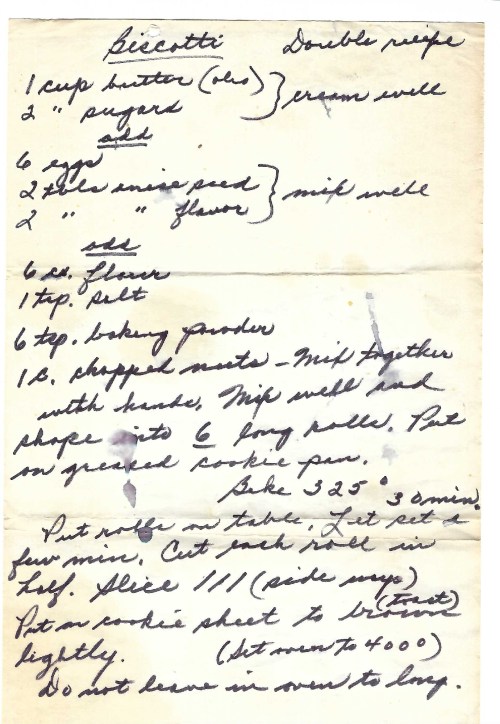 Biscotti Double recipe
1 cup butter (oleo) } cream well
2 " sugard
add
6 eggs
2 tbls anise seed } mix well
2 " " flavor
add
6 cs. flour
1 tsp. salt
6 tsp. baking powder
1 c. chopped nuts - Mix together
with hands. Mix well and
shape into 6 long rolls. Put
on greased cookie pan.
Bake 325° 30 min.
Put rolls on table. Let set a
few min. Cut each roll in
half. Slice /// (side ways)
Put on cookie sheet to brown (toast)
lightly. (Set oven to 400°)
Do not leave in oven to long.